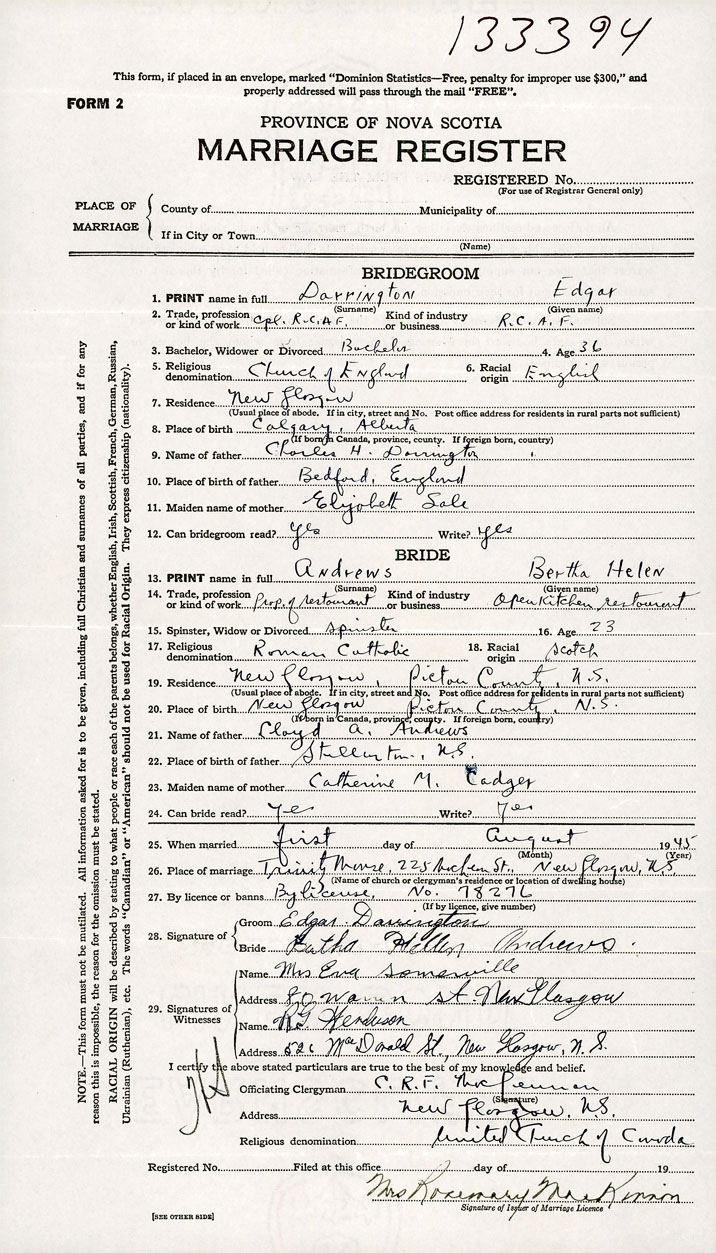 133394
This form, if placed in an envelope, marked "Dominion Statistics—Free, penalty for improper use $300," and
properly addressed will pass through the mail "FREE".
FORM 2
PROVINCE OF NOVA SCOTIA
MARRIAGE REGISTER
REGISTERED No.
(For use of Registrar General only)
PLACE OF MARRIAGE
County of Municipality of
If in City or Town
(Name)
BRIDEGROOM
1. PRINT name in full Darrington Edgar
(Surname) (Given name)
2. Trade, profession or kind of work Cpl. R.C.A.F. Kind of industry or business R.C.A.F.
3. Bachelor, Widower or Divorced Bachelor 4. Age 36
5. Religious denomination Church of England 6. Racial origin English
7. Residence New Glasgow
(Usual place of abode. If in city, street and No. Post office address for residents in rural parts not sufficient)
8. Place of birth Calgary, Alberta
(If born in Canada, province, county. If foreign born, country)
9. Name of father Charles H. Darrington
10. Place of birth of father Bedford, England
11. Maiden name of mother Elizabeth Sale
12. Can bridegroom read? yes Write? yes
BRIDE
13. PRINT name in full Andrews Bertha Helen
(Surname) (Given name)
14. Trade, profession or kind of work Prop. of restaurant Kind of industry or business Open Kitchen, restaurant
15. Spinster, Widow or Divorced Spinster 16. Age 23
17. Religious denomination Roman Catholic 18. Racial origin Scotch
19. Residence New Glasgow, Pictou County, N.S.
(Usual place of abode. If in city, street and No. Post office address for residents in rural parts not sufficient)
20. Place of birth New Glasgow Pictou County, N.S.
(If born in Canada, province, county. If foreign born, country)
21. Name of father Lloyd A. Andrews
22. Place of birth of father Stellarton, N.S.
23. Maiden name of mother Catherine M. Cadger
24. Can bride read? Yes Write? Yes
25. When married first day of August 1945
(Month) (Year)
26. Place of marriage Trinity Manse, 225 St., New Glasgow, N.S
(Name of church or clergyman's residence or location of dwelling house)
27. By licence or banns By license, No. 78276
(If by licence, give number)
28. Signature of
Groom Edgar Darrington
Bride Bertha Hellen Andrews.
29. Signatures of Witnesses
Name Mrs Eva Somerville
Address 80 St. New Glasgow
Name R G Henderson
Address 526 MacDonald St., New Glasgow, N.S.
I certify the above stated particulars are true to the best of my knowledge and belief.
Officiating Clergyman C. R. F.
(Signature)
Address New Glasgow, N.S.
Religious denomination United Church of Canada
Registered No. Filed at this office day of 19
Mrs Rosemary MacKinnon
Signature of Issuer of Marriage Licence
[SEE OTHER SIDE]
NOTE.—This form must not be mutilated. All information asked for is to be given, including full Christian and surnames of all parties, and if for any
reason this is impossible, the reason for the omission must be stated.
RACIAL ORIGIN will be described by stating to what people or race each of the parents belongs, whether English, Irish, Scottish, French, German, Russian,
Ukrainian (Ruthenian), etc. The words "Canadian" or "American" should not be used for Racial Origin. They express citizenship (nationality).